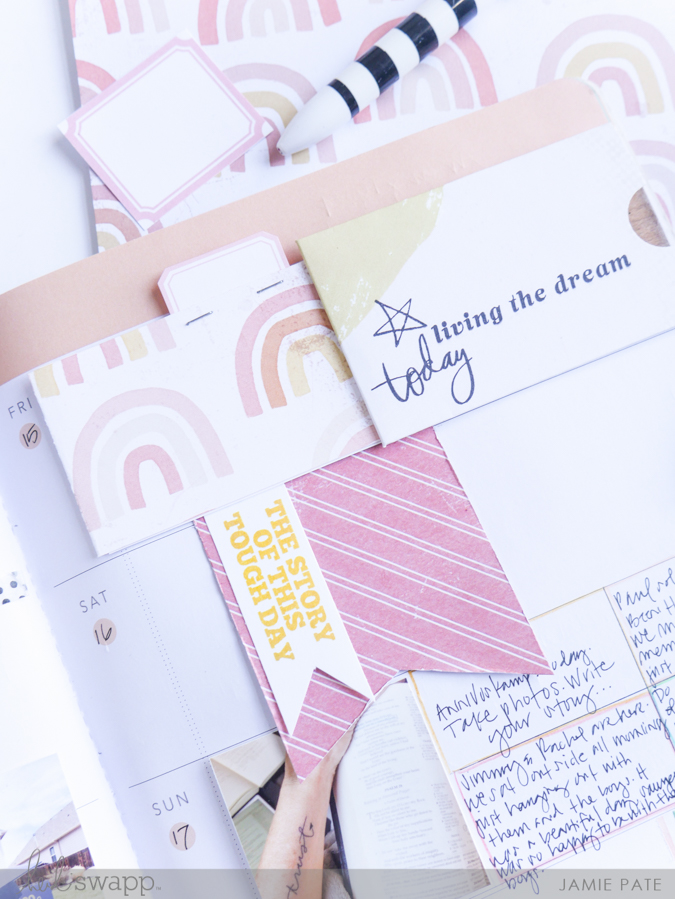 living the dream
today
FRI
15
THE STORY
OF THIS
TOUGH DAY
SAT
16
SUN
17
AnnVoskamp today.
Take photos. Write
your story...
Jimmy & Rachel are here.
We sat outside all morning
just hanging out with
them and the boys. It
was a beautiful day
was so happy to be with the
boys.
Paul
we
just
Do
trust
heidi swapp
JAMIE PATE